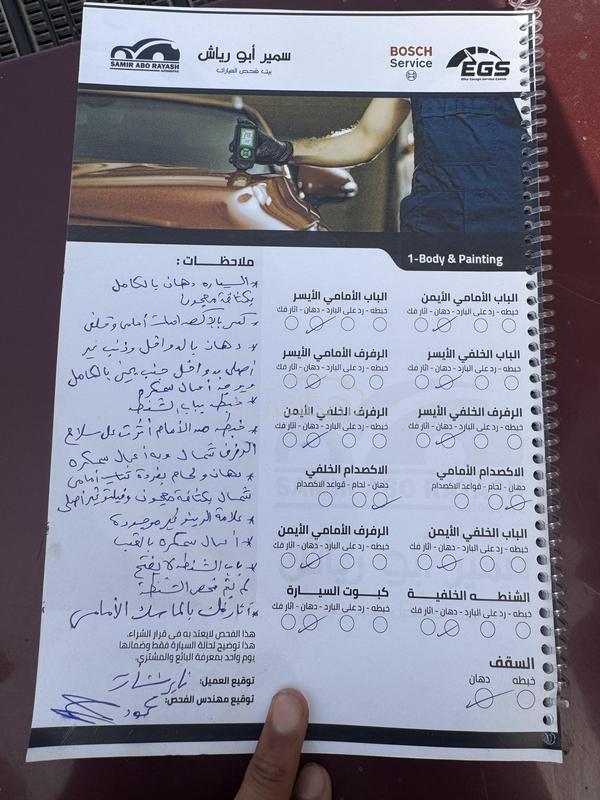 SAMIR ABO RAYASH
AUTOMOTIVE
سمير أبو رياش
بيت فحص السيارات
BOSCH
Service
EGS
Elite Garage Service Center
1-Body & Painting
الباب الأمامي الأيمن
خبطه - رد على البارد - دهان - اثار فك
الباب الأمامي الأيسر
خبطه - رد على البارد - دهان - اثار فك
الباب الخلفي الأيسر
خبطه - رد على البارد - دهان - اثار فك
الرفرف الأمامي الأيسر
خبطه - رد على البارد - دهان - اثار فك
الرفرف الخلفي الأيسر
خبطه - رد على البارد - دهان - اثار فك
الرفرف الخلفي الأيمن
خبطه - رد على البارد - دهان - اثار فك
الاكصدام الأمامي
دهان - لحام - قواعد الاكصدام
الاكصدام الخلفي
دهان - لحام - قواعد الاكصدام
الباب الخلفي الأيمن
خبطه - رد على البارد - دهان - اثار فك
الرفرف الأمامي الأيمن
خبطه - رد على البارد - دهان - اثار فك
الشنطه الخلفية
خبطه - رد على البارد - دهان - اثار فك
كبوت السيارة
خبطه - رد على البارد - دهان - اثار فك
السقف
خبطه دهان
ملاحظات :
* السياره دهان بالكامل
بكثافة معجون
* كسر بالاكصدامات أمامى وخلفى
* دهان بالدواخل وذنب غير
أصلى بدواخل جنب يمين بالكامل
ويوجد أعمال سمكره
* خبطه بباب الشنطه
* خبطه من الأمام أثرت على سلاح
الرفرف شمال وبه أعمال سمكره
* دهان ولحام بفردة أمامى
شمال بكثافه معجون وفيلتو غير أصلى
* علامة غير موجودة
* أعمال سمكره بالعتب
* باب الشنطه لا يفتح
لم يتم فحص الشنطة
* آثار فك بالماسك الأمامى
هذا الفحص لايعتد به فى قرار الشراء،
هذا توضيح لحالة السيارة فقط وضمانها
يوم واحد بمعرفة البائع والمشتري.
توقيع العميل:
توقيع مهندس الفحص: